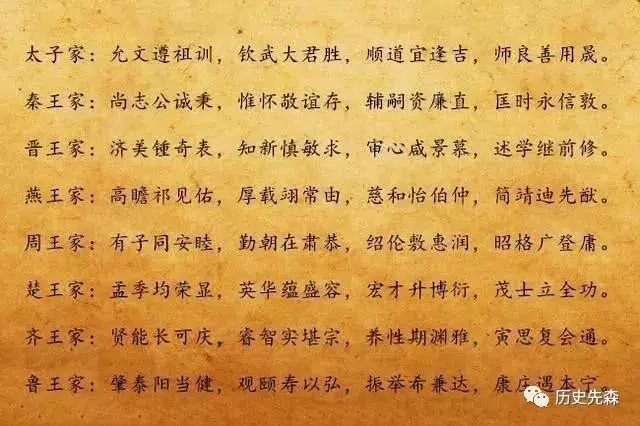 太子家：允文遵祖训，钦武大君胜，顺道宜逢吉，师良善用晟。
秦王家：尚志公诚秉，惟怀敬谊存，辅嗣资廉直，匡时永信敦。
晋王家：济美锺奇表，知新慎敏求，审心咸景慕，述学继前修。
燕王家：高瞻祁见佑，厚载翊常由，慈和怡伯仲，简靖迪先猷。
周王家：有子同安睦，勤朝在肃恭，绍伦敷惠润，昭格广登庸。
楚王家：孟季均荣显，英华蕴盛容，宏才升博衍，茂士立全功。
齐王家：贤能长可庆，睿智实堪宗，养性期渊雅，寅思复会通。
鲁王家：肇泰阳当健，观颐寿以弘，振举希兼达，康庄遇本宁。
历史先森